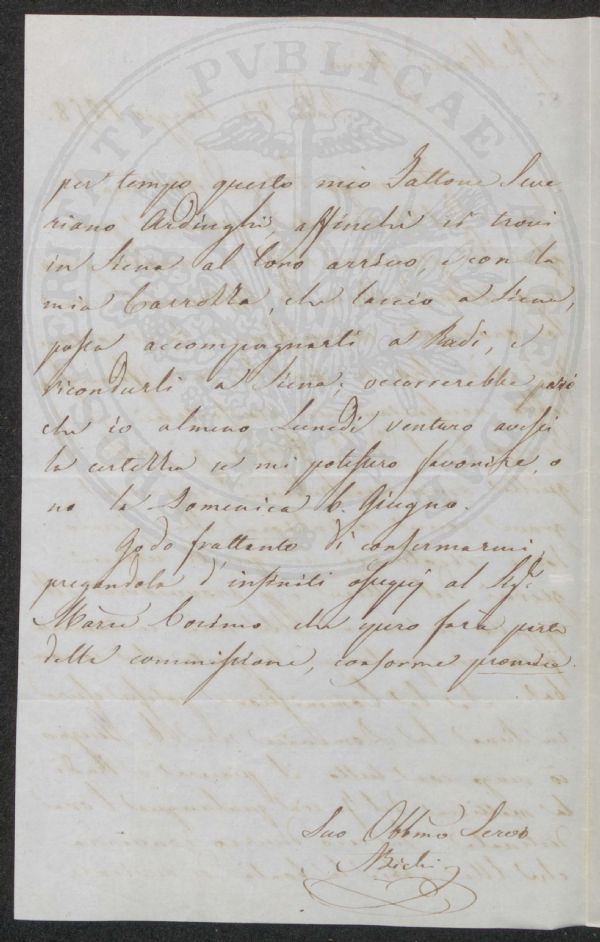 PROSPERITATI PVBLICAE AVGENDAE
per tempo questo mio Fattore Seve
riano Ardinghi, affinchè si trovi
in Siena al loro arrivo, e con la
mia Carrozza, che lascio a Siena,
possa accompagnarli a Radi, e
ricondurli a Siena; occorrerebbe però
che io almeno Lunedì venturo avessi
la certezza se mi potessero favorire, o
no la Domenica 6. Giugno.
Godo frattanto di confermarmi,
pregandola d'infiniti ossequj al Sig.r
Marse Cosimo che spero farà parte
della commissione, conforme promise.
Suo Obbmo Servo
Bichi